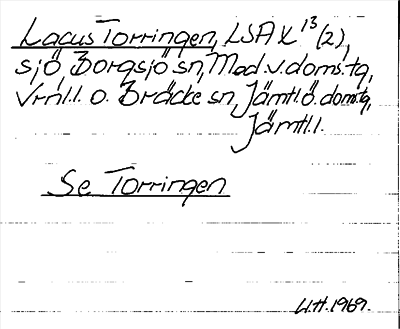 Lacus Torringen, LSA X 13 (2),
sjö, Borgsjö sn, Med. v. doms. tg,
Vrnl. l. o. Bräcke sn, Jämtl. ö. doms. tg,
Jämtl. l.
Se Torringen
U.H. 1969.